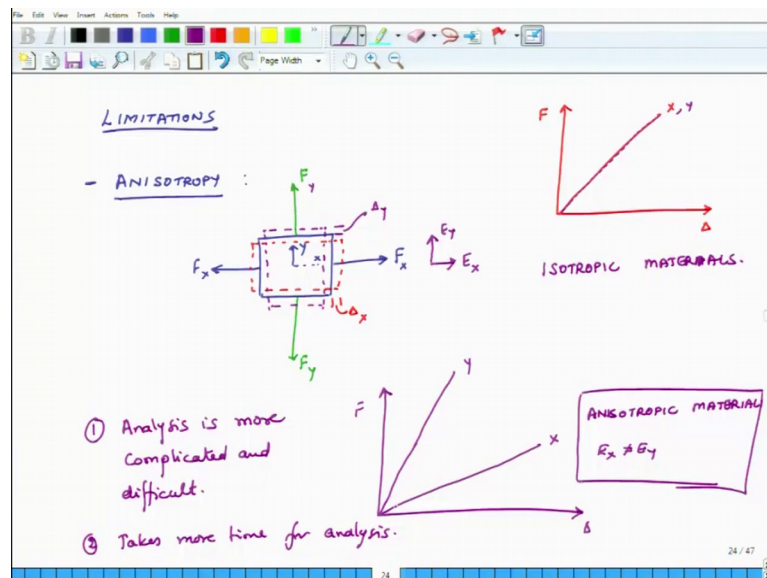 File Edit View Insert Actions Tools Help
B I
Page Width
LIMITATIONS
- ANISOTROPY :
Fy
Δy
y
x
Fx
Fx
Ey
Ex
Δx
Fy
F
x, y
Δ
ISOTROPIC MATERIALS.
① Analysis is more
complicated and
difficult.
② Takes more time for analysis.
F
y
x
Δ
ANISOTROPIC MATERIAL
Ex ≠ Ey
24 / 47
24